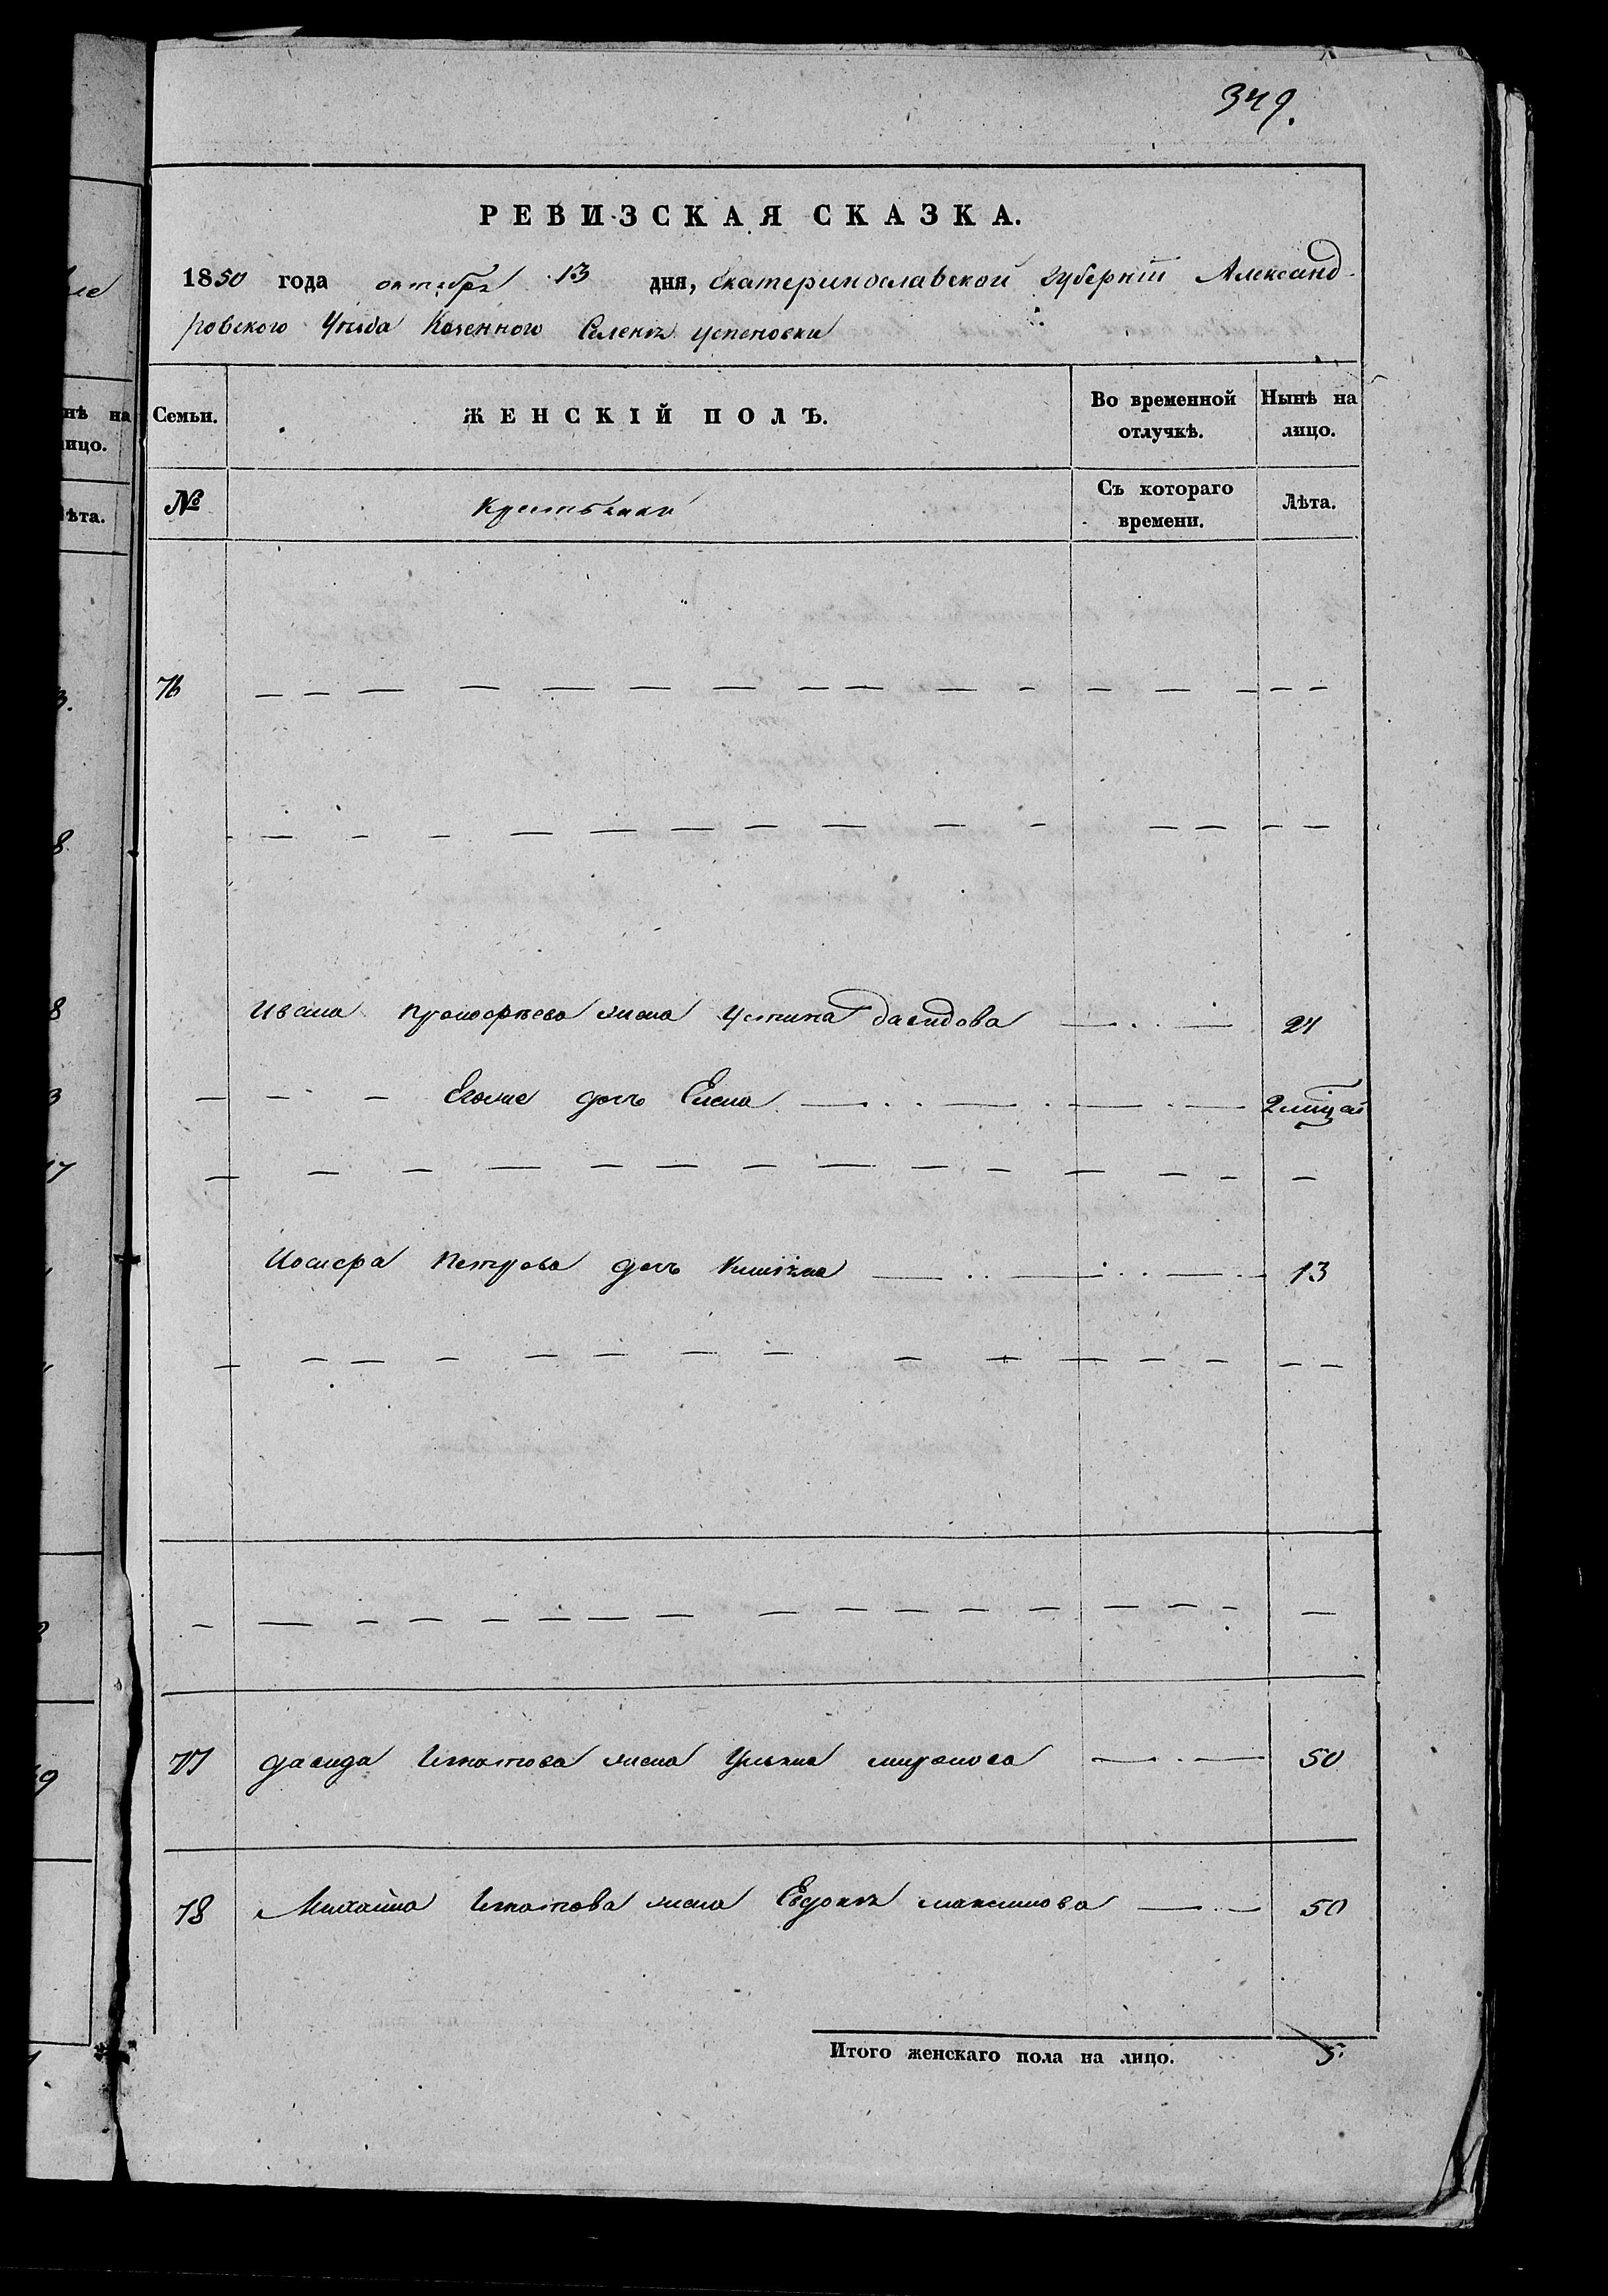 349.
РЕВИЗСКАЯ СКАЗКА.
1850 года октября 13 дня, Екатеринославской Губернии Александ-
ровского Уезда Казенного Селения Успеновки
Семьи. ЖЕНСКІЙ ПОЛЪ. Во временной отлучкѣ. Нынѣ на лицо.
№ Крестьянки Съ котораго времени. Лѣта.
76
Ивана Прокофьева жена Устина Давидова 24
Егоже дочь Елена
Иосифа Петрова дочь 13
77 Давида Игнатова жена Ульяна Миронова 50
78 Михайла Игнатова жена Евдокия Максимова 50
Итого женскаго пола на лицо. 5.
нѣ на
ицо.
ѣта.